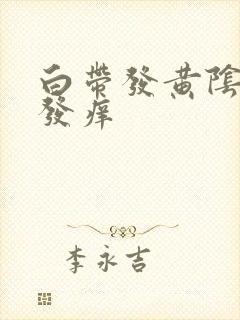 白帶發黃陰
發痒
李永吉